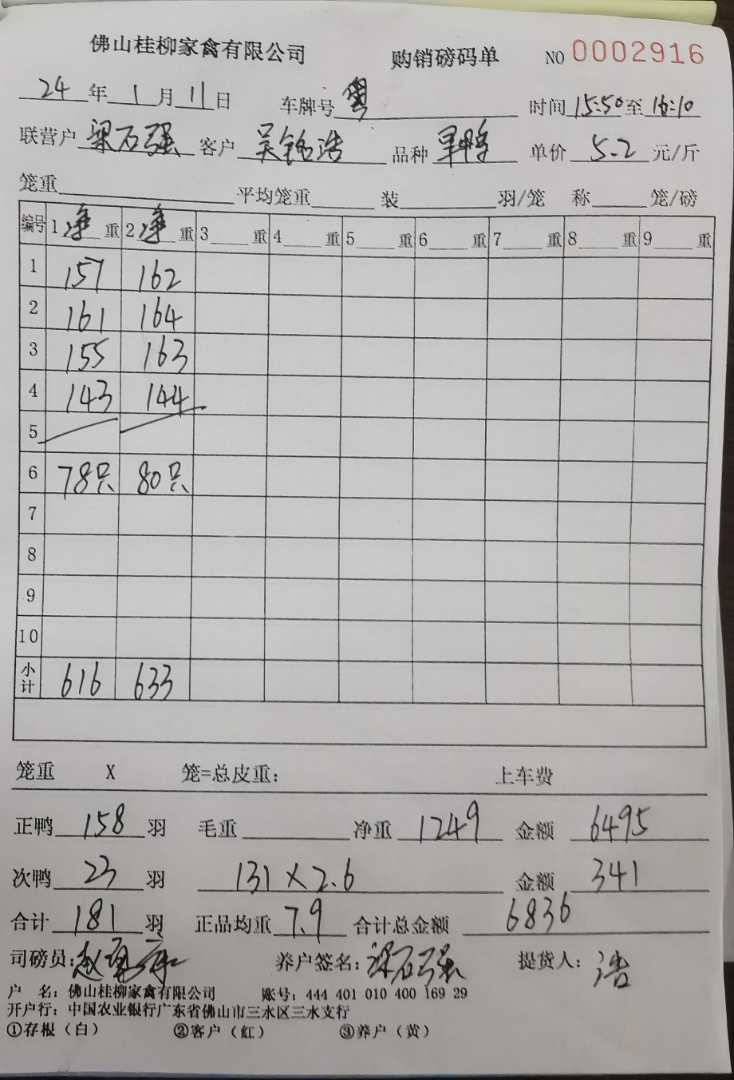 佛山桂柳家禽有限公司 购销磅码单 NO 0002916
24 年 1 月 11 日 车牌号 粤 时间 15:50 至 16:10
联营户 梁石强 客户 吴铭浩 品种 旱鸭 单价 5.2 元/斤
笼重 平均笼重 装 羽/笼 称 笼/磅
编号 1 净 重 2 净 重 3 重 4 重 5 重 6 重 7 重 8 重 9 重
1 157 162
2 161 164
3 155 163
4 143 144
5
6 78只 80只
7
8
9
10
小计 616 633
笼重 X 笼=总皮重: 上车费
正鸭 158 羽 毛重 净重 1249 金额 6495
次鸭 23 羽 131×2.6 金额 341
合计 181 羽 正品均重 7.9 合计总金额 6836
司磅员: 养户签名: 梁石强 提货人: 浩
户 名: 佛山桂柳家禽有限公司 账号: 444 401 010 400 169 29
开户行: 中国农业银行广东省佛山市三水区三水支行
①存根(白) ②客户(红) ③养户(黄)